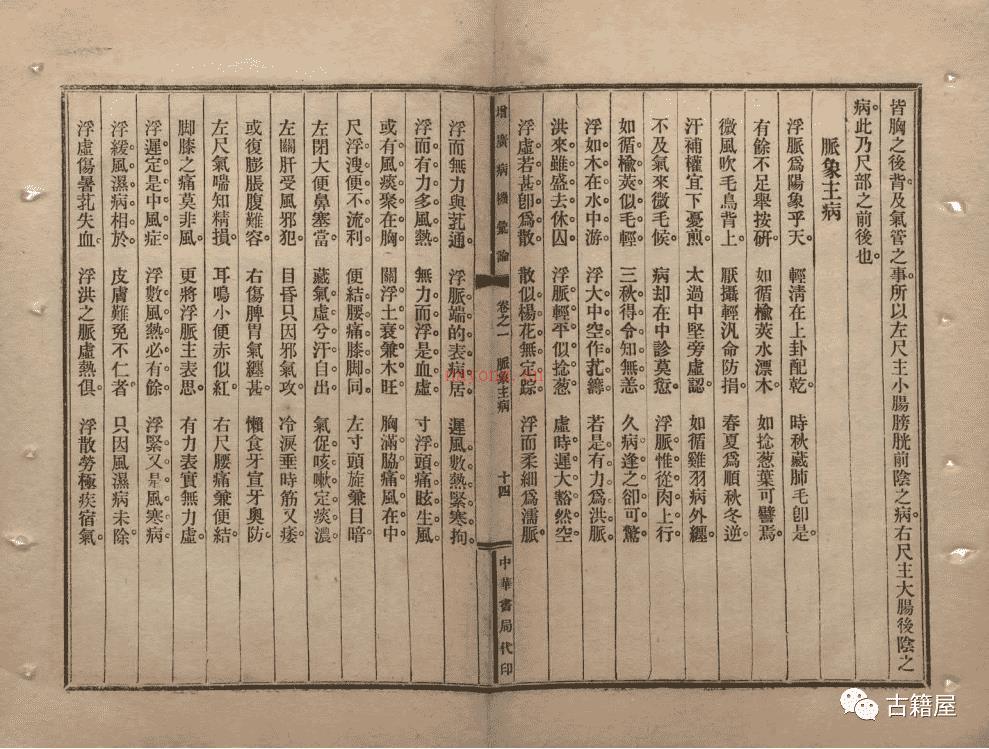 皆胸之後背及氣管之事。所以左尺主小腸膀胱前陰之病。右尺主大腸後陰之
病。此乃尺部之前後也。
脈象主病
浮脈爲陽象乎天。輕淸在上卦配乾。時秋藏肺毛卽是。
有餘不足舉按硏。如循楡莢水漂木。如捻葱葉可譬焉。
微風吹毛鳥背上。厭攝輕汎命防捐。春夏爲順秋冬逆。
汗補權宜下憂煎。太過中堅旁虛認。如循雞羽病外纏。
不及氣來微毛候。病却在中診莫愆。浮脈惟從肉上行。
如循楡莢似毛輕。三秋得令知無恙。久病逢之卻可驚。
浮如木在水中游。浮大中空作芤籌。若是有力爲洪脈。
洪來雖盛去休囚。浮脈輕平似捻葱。虛時遲大豁然空。
浮虛若甚卽爲散。散似楊花無定踪。浮而柔細爲濡脈。
增廣病機彙論 卷之一 脈象主病 十四 中華書局代印
浮而無力與芤通。浮脈端的表病居。遲風數熱緊寒拘。
浮而有力多風熱。無力而浮是血虛。寸浮頭痛眩生風。
或有風痰聚在胸。關浮土衰兼木旺。胸滿脇痛風在中。
尺浮溲便不流利。便結腰痛膝脚同。左寸頭旋兼目暗。
左閉大便鼻塞當。藏氣虛兮汗自出。氣促咳嗽定痰濃。
左關肝受風邪犯。目昏只因邪氣攻。冷淚垂時筋又痿。
或復膨脹腹難容。右傷脾胃氣纏甚。懶食牙宣牙奥防。
左尺氣喘知精損。耳鳴小便赤似紅。右尺腰痛兼便結。
脚膝之痛莫非風。更將浮脈主表思。有力表實無力虛。
浮遲定是中風症。浮數風熱必有餘。浮緊又是風寒病。
浮緩風濕病相於。皮膚難免不仁者。只因風濕病未除。
浮虛傷暑芤失血。浮洪之脈虛熱俱。浮散勞極疾宿氣。
古籍屋